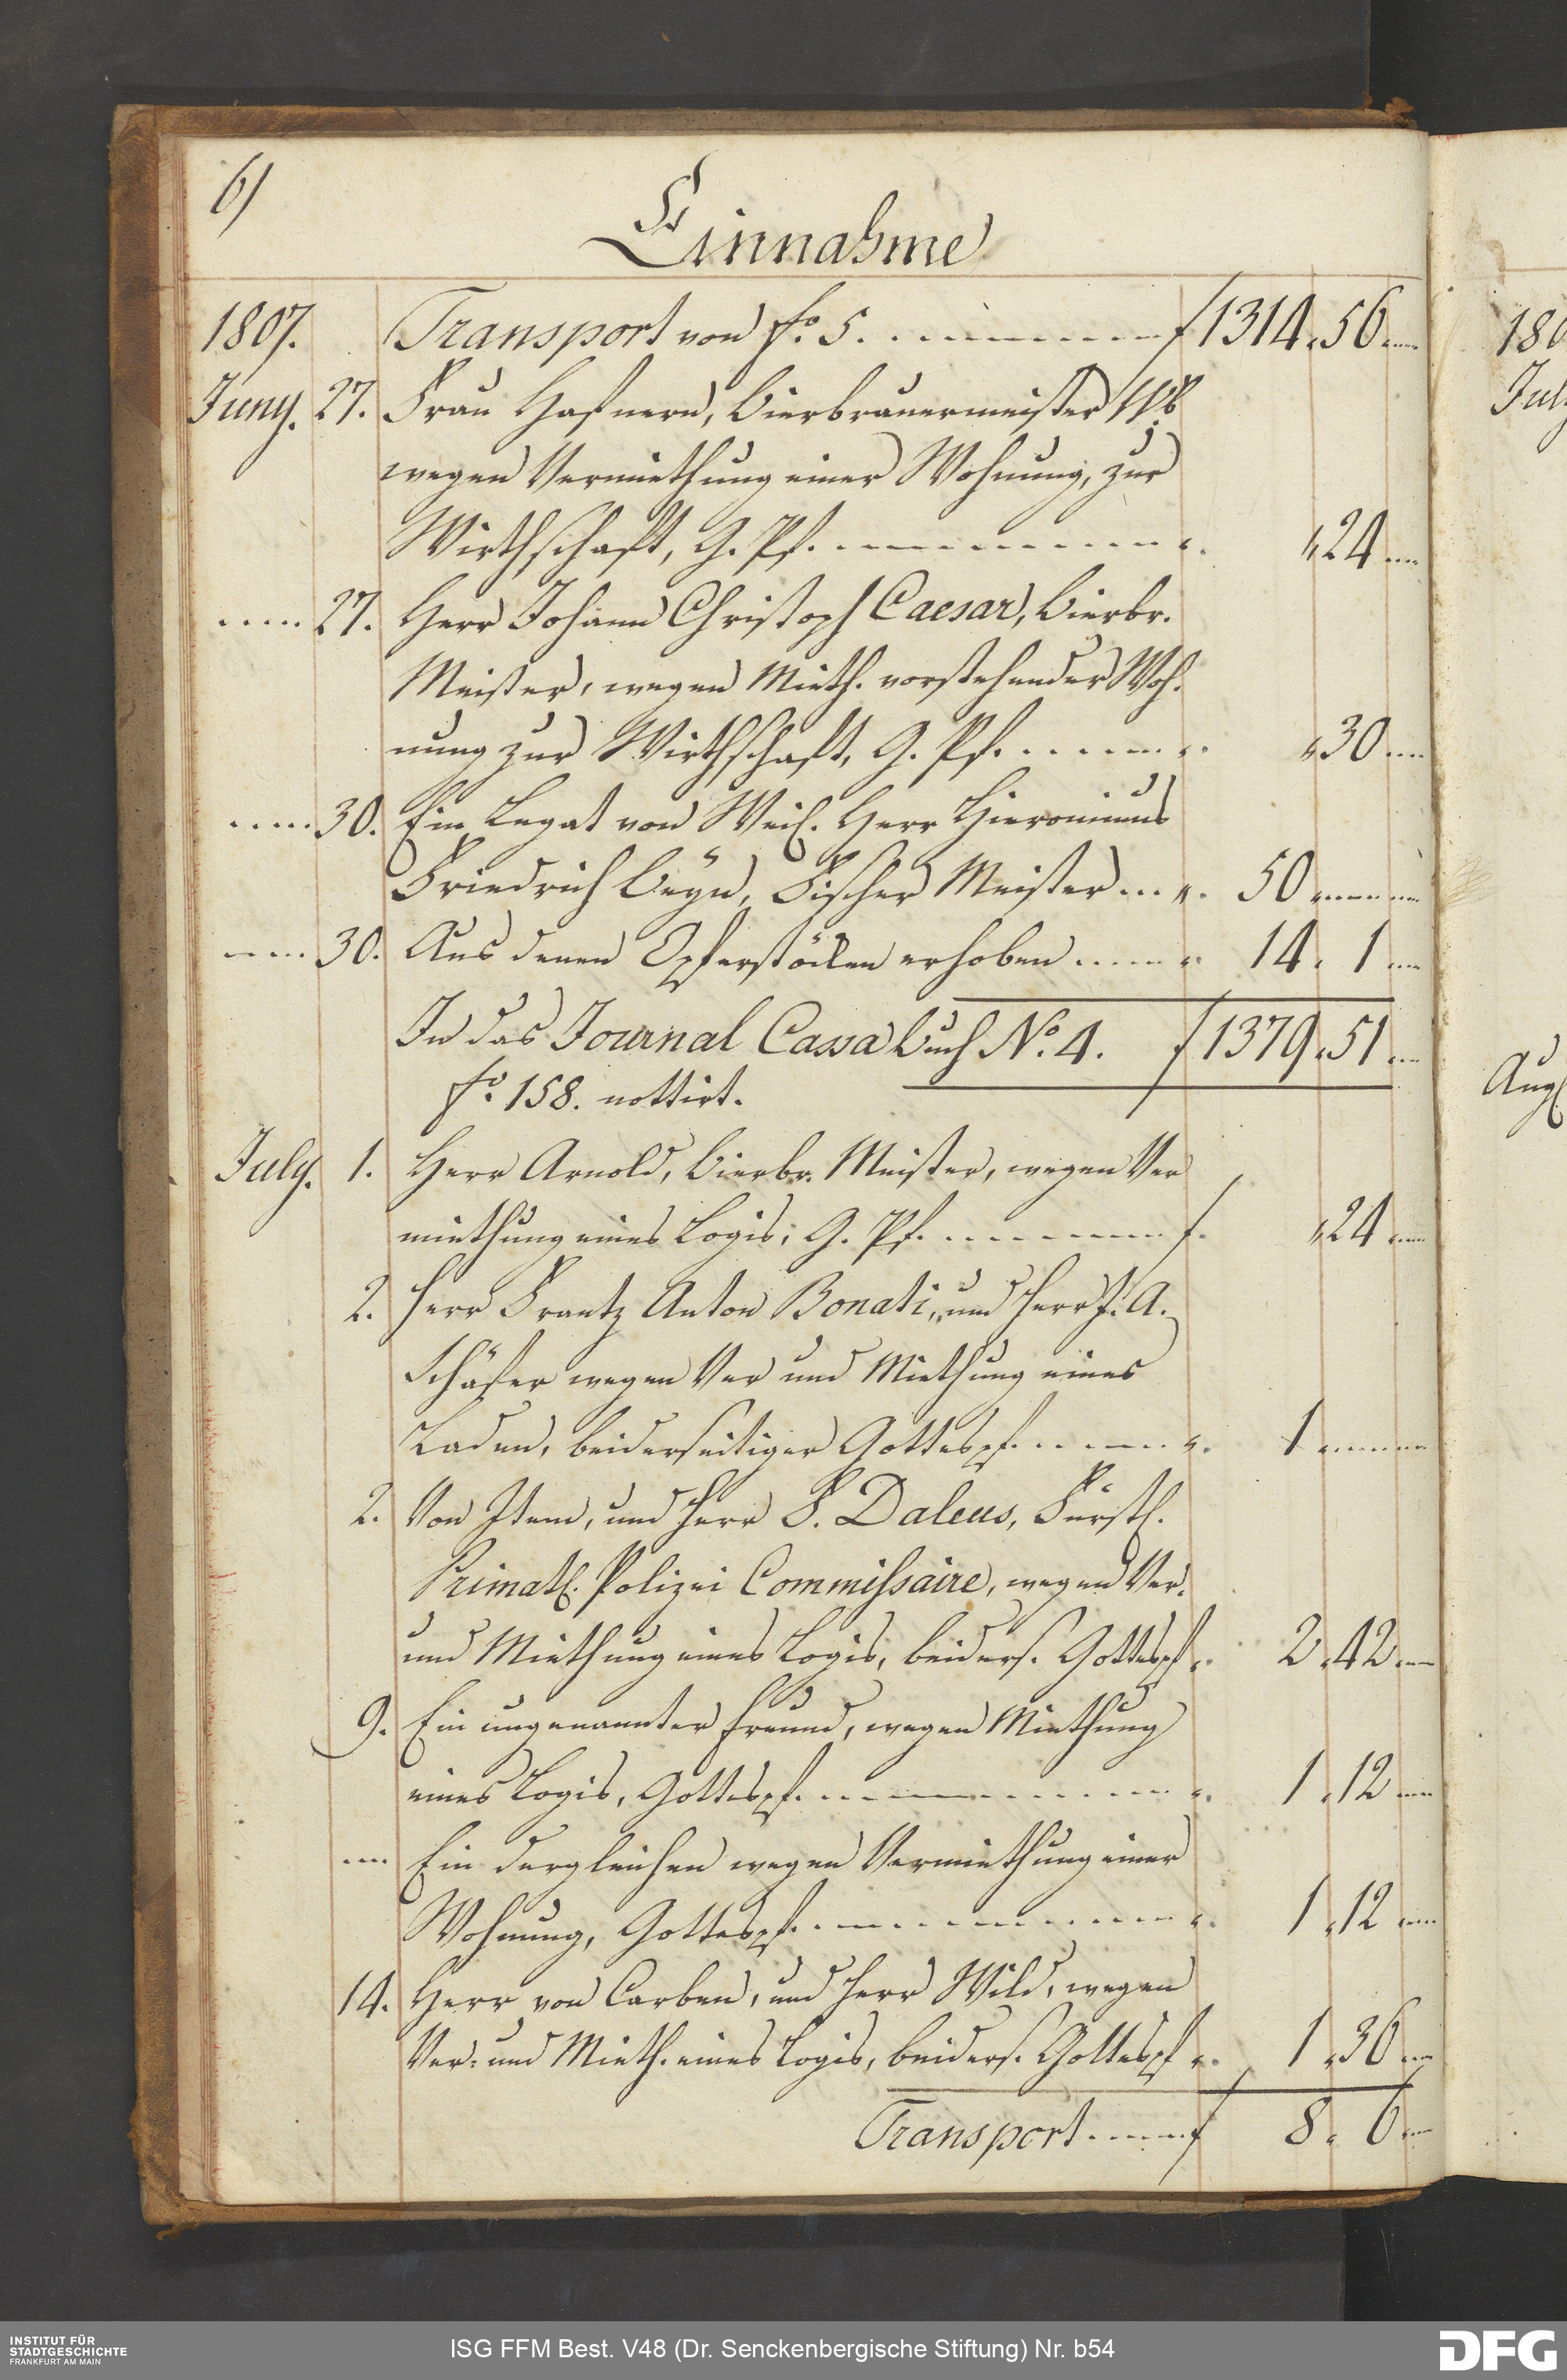 6)
Einnahme
1807. Transport von fo. 5. f 1314. 56
Juny. 27. Frau Hafnern, Bierbrauermeister Wb
wegen Vermiethung einer Wohnung, zur
Wirthschaft, G. Pf. " 24
27. Herr Johann Christoph Caesar, Bierbr.
Meister, wegen Mieth. vorstehender Woh-
nung zur Wirthschaft, G. Pf. " 30
30. Ein Legat von Weil. Herr Hieronimus
Friedrich Beyn, Fischer Meister 50
30. Aus denen Opferstöcken erhoben 14. 1
In das Journal Cassa Buch No. 4. f 1379. 51
fo. 158. nottirt.
July. 1. Herr Arnold, Bierbr. Meister, wegen Ver
miethung eines Logis, G. Pf. f. " 24
2. Herr Frantz Anton Bonati, und Herr J. A.
Schäfer wegen Ver und Miethung eines
Laden, beiderseitiger Gottespf. 1
2. Von Item, und Herr F. Daleus, Fürstl.
Primatl. Polizei Commissaire, wegen Ver-
und Miethung eines Logis, beiders. Gottespf 2. 42
9. Ein ungenannter Freund, wegen Miethung
eines Logis, Gottespf. 1. 12
Ein dergleichen wegen Vermiethung einer
Wohnung, Gottespf. 1. 12
14. Herr von Carben, und Herr Wild, wegen
Ver- und Mieth. eines Logis, beiders. Gottespf 1. 36
Transport f 8. 6
180
July
Aug
INSTITUT FÜR
STADTGESCHICHTE
FRANKFURT AM MAIN
ISG FFM Best. V48 (Dr. Senckenbergische Stiftung) Nr. b54
DFG